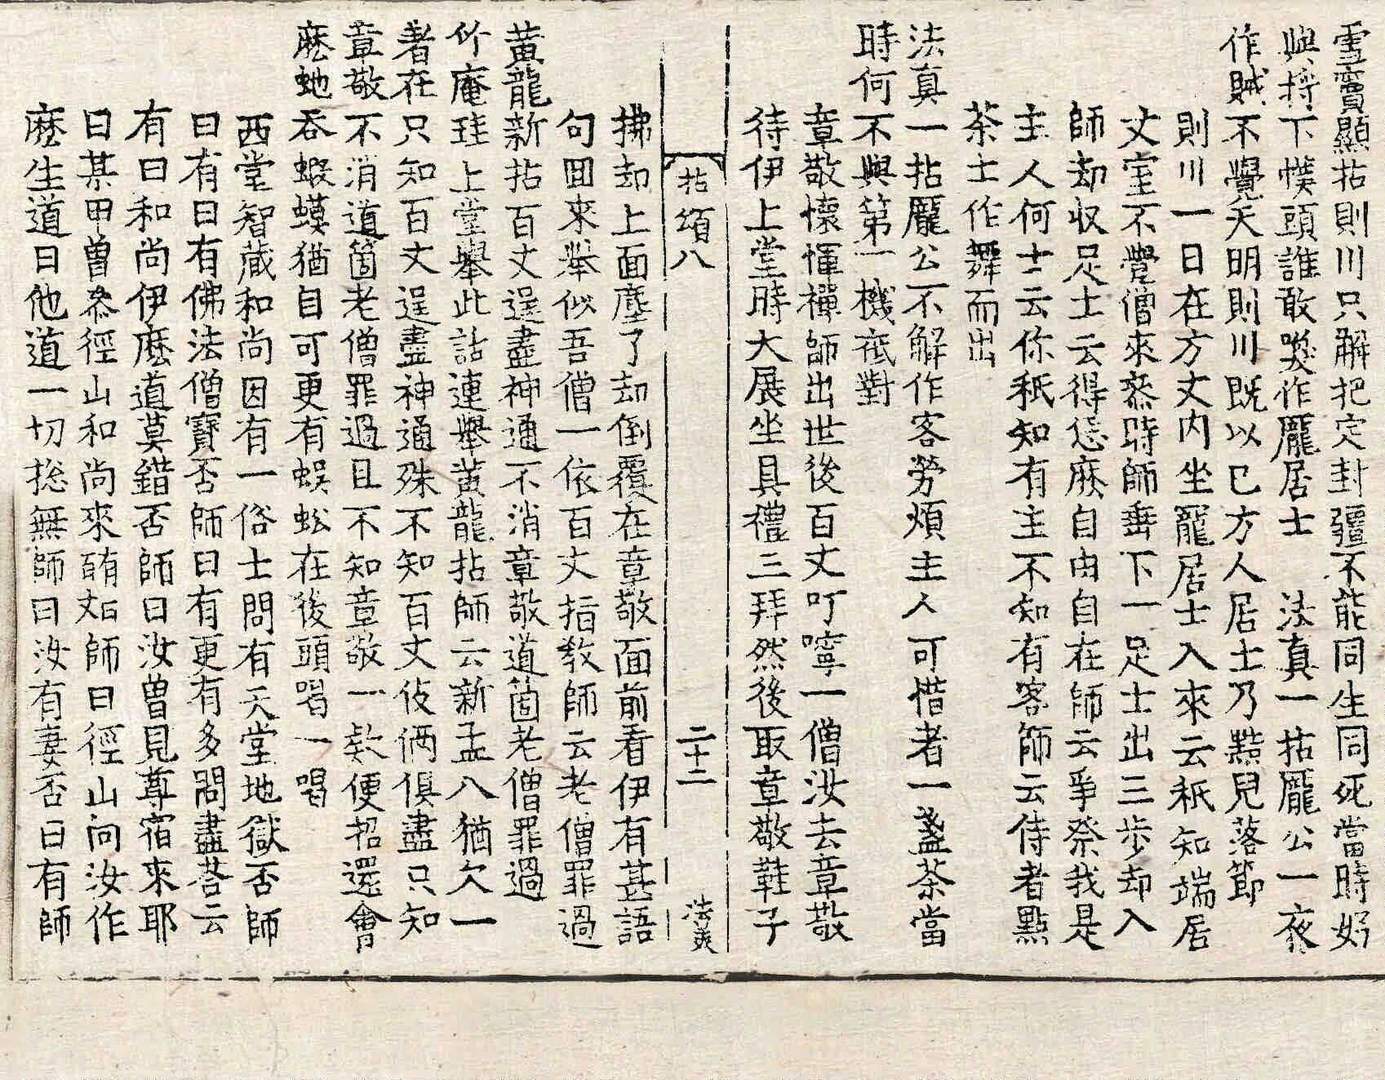 雪竇顯拈則川只解把定封疆不能同生同死當時好
與捋下幞頭誰敢喚作龐居士 法真一拈龐公一夜
作賊不覺天明則川既以己方人居士乃㸃兒落節
則川一日在方丈内坐龐居士入來云秖知端居
丈室不覺僧來叅時師垂下一足士出三步却入
師却收足士云得恁麽自由自在師云爭柰我是
主人何士云你秖知有主不知有客師云侍者㸃
茶士作舞而出
法真一拈龐公不解作客勞煩主人可惜者一盞茶當
時何不與第一機祇對
章敬懷惲禪師出世後百丈叮嚀一僧汝去章敬
待伊上堂時大展坐具禮三拜然後取章敬鞋子
拈頌八 二十二 法㺯
拂却上面塵了却倒覆在章敬面前看伊有甚語
句回來舉似吾僧一依百丈指教師云老僧罪過
黄龍新拈百丈逞盡神通不消章敬道箇老僧罪過
竹庵珪上堂舉此話連舉黄龍拈師云新孟八猶欠一
著在只知百丈逞盡神通殊不知百丈伎倆俱盡只知
章敬不消道箇老僧罪過且不知章敬一欵便招還會
麽虵吞蝦蟆猶自可更有蜈蚣在後頭喝一喝
西堂智藏和尚因有一俗士問有天堂地獄否師
曰有曰有佛法僧寶否師曰有更有多問盡荅云
有曰和尚伊麽道莫錯否師曰汝曾見尊宿來耶
曰某甲曾叅徑山和尚來師曰徑山向汝作
麽生道曰他道一切揔無師曰汝有妻否曰有師